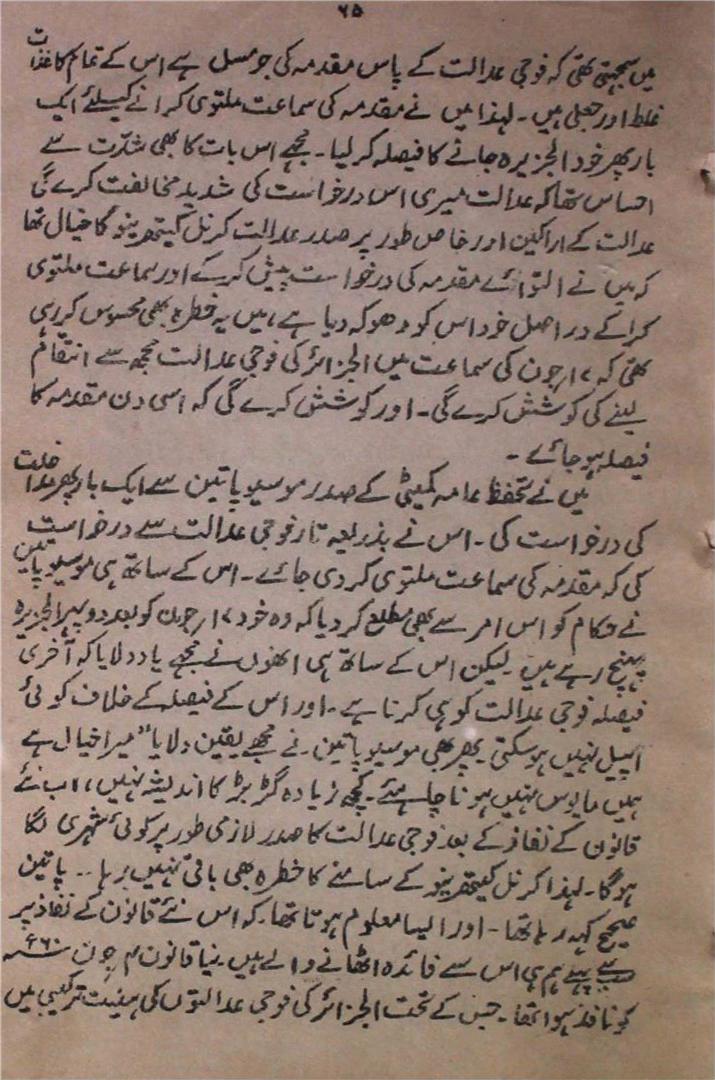 ۶۵
میں سمجھتی تھی کہ فوجی عدالت کے پاس مقدمہ کی جو مسل ہے اس کے تمام کاغذات
غلط اور جعلی ہیں۔ لہذا میں نے مقدمہ کی سماعت ملتوی کرانے کیلئے ایک
بار پھر خود الجزیرہ جانے کا فیصلہ کر لیا۔ مجھے اس بات کا بھی شدّت سے
احساس تھا کہ عدالت میری اس درخواست کی شدید مخالفت کرے گی
عدالت کے اراکین اور خاص طور پر صدر عدالت کرنل کیتھرینو کا خیال تھا
کہ میں نے التوائے مقدمہ کی درخواست پیش کر کے اور سماعت ملتوی
کرا کے دراصل خود اس کو دھوکہ دیا ہے، میں یہ خطرہ بھی محسوس کر رہی
تھی کہ ۱۷ جون کی سماعت میں الجزائر کی فوجی عدالت مجھ سے انتقام
لینے کی کوشش کرے گی۔ اور کوشش کرے گی کہ اسی دن مقدمہ کا
فیصلہ ہو جائے۔
میں نے تحفظ عامہ کمیٹی کے صدر موسیو پاتین سے ایک بار پھر مداخلت
کی درخواست کی۔ اس نے بذریعہ تار فوجی عدالت سے درخواست
کی کہ مقدمہ کی سماعت ملتوی کر دی جائے۔ اس کے ساتھ ہی موسیو پاتین
نے حکام کو اس امر سے بھی مطلع کر دیا کہ وہ خود ۱۷ جون کو بعد دوپہر الجزیرہ
پہنچ رہے ہیں۔ لیکن اس کے ساتھ ہی انھوں نے مجھے یاد دلایا کہ آخری
فیصلہ فوجی عدالت کو ہی کرنا ہے۔ اور اس کے فیصلہ کے خلاف کوئی
اپیل نہیں ہو سکتی۔ پھر بھی موسیو پاتین نے مجھے یقین دلایا "میرا خیال ہے
ہمیں مایوس نہیں ہونا چاہئے۔ کچھ زیادہ گڑبڑ کا اندیشہ نہیں، اب نئے
قانون کے نفاذ کے بعد فوجی عدالت کا صدر لازمی طور پر کوئی شہری لگا
ہوگا۔ لہذا کرنل کیتھرینو کے سامنے کا خطرہ بھی باقی نہیں رہا۔۔ پاتین
صحیح کہہ رہا تھا۔ اور ایسا معلوم ہوتا تھا۔ کہ اس نئے قانون کے نفاذ پر
سب سے پہلے ہم ہی اس سے فائدہ اٹھانے والے ہیں۔ نیا قانون ۴ جون سنہ ۶۶۰
کو نافذ ہوا تھا۔ جس کے تحت الجزائر کی فوجی عدالتوں کی ہیئت ترکیبی میں